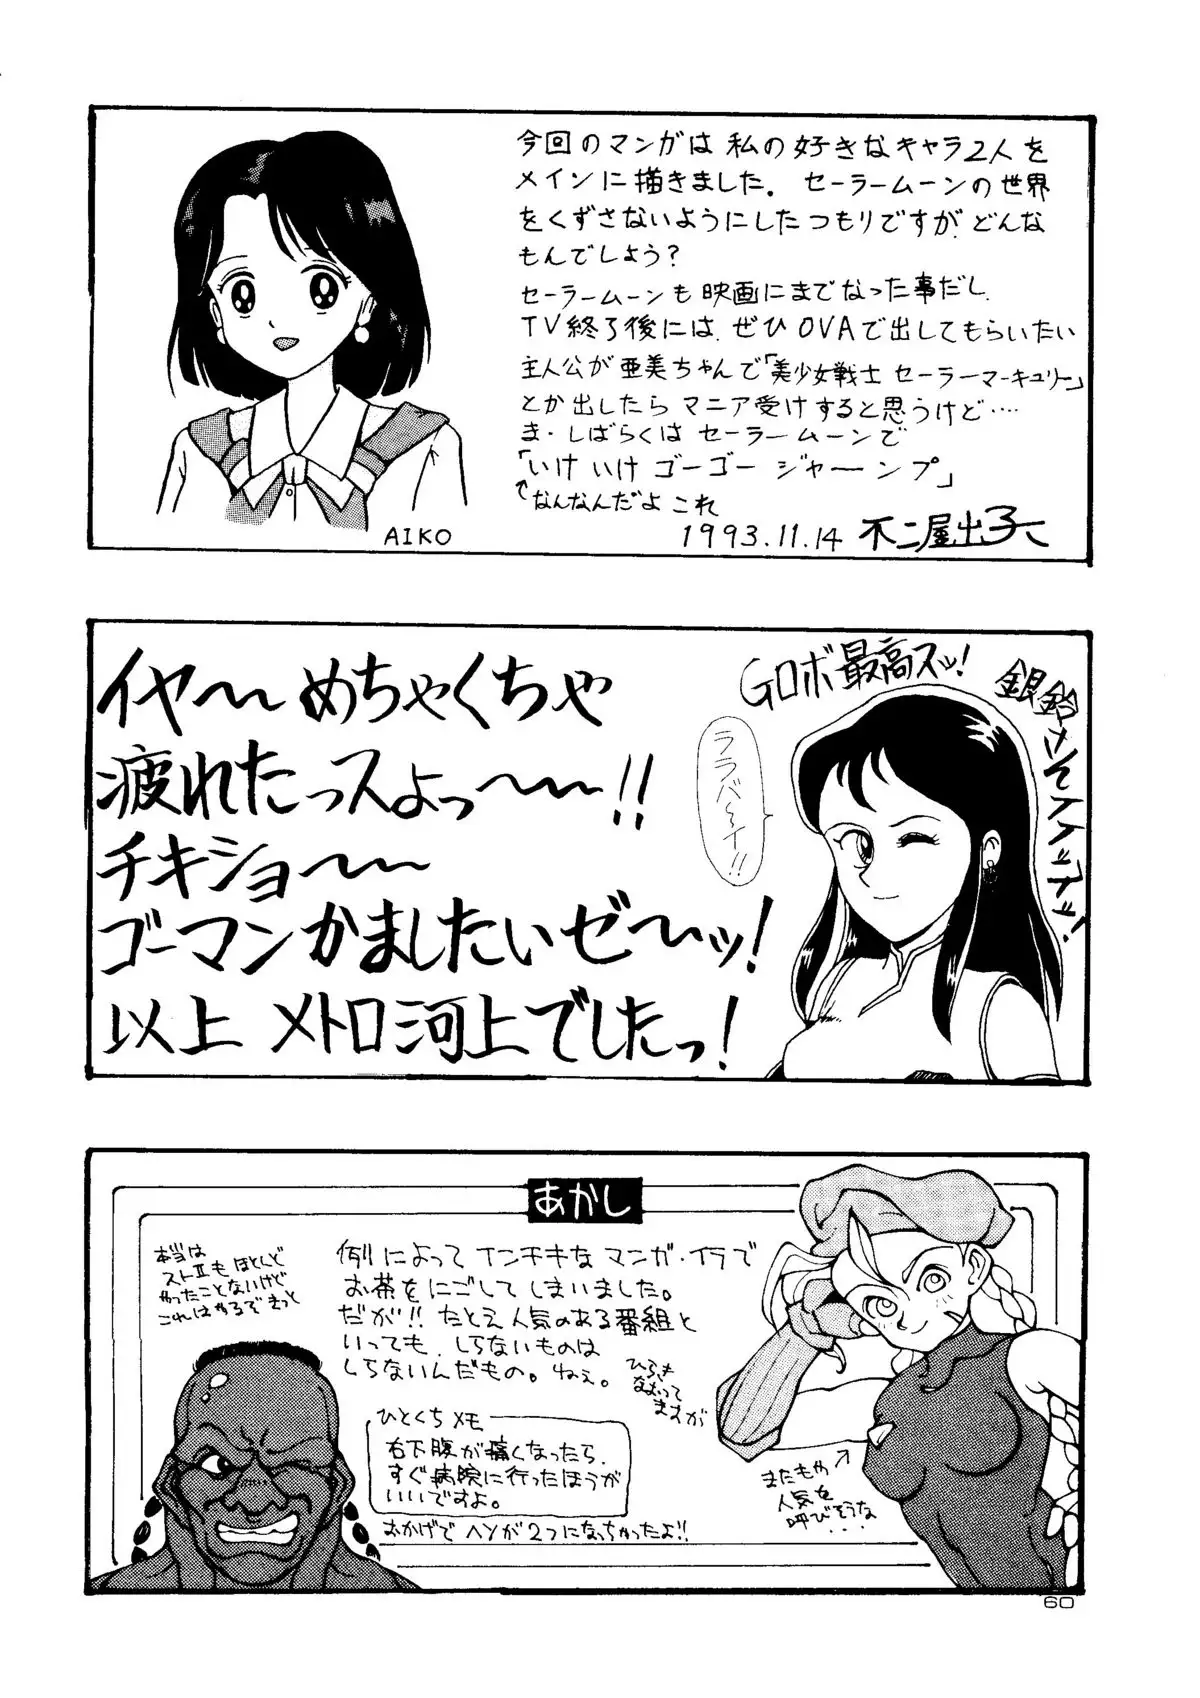 今回のマンガは 私の好きなキャラ2人を
メインに描きました。 セーラームーンの世界
をくずさないようにしたつもりですが、どんな
もんでしょう?
セーラームーンも映画にまでなった事だし、
TV終了後には、ぜひOVAで出してもらいたい
主人公が亜美ちゃんで「美少女戦士 セーラーマーキュリー」
とか出したら マニア受けすると思うけど‥‥
ま・しばらくは セーラームーンで
「いけいけ ゴーゴー ジャーーンプ」
↑なんなんだよ これ
1993.11.14 不二屋出子
AIKO
イヤ〜〜 めちゃくちゃ
疲れたっスよっ〜〜〜!!
チキショ〜〜〜
ゴーマンかましたいゼ〜〜ッ!
以上 メトロ河上でしたっ!
Gロボ最高スッ!
銀鈴さんてステキッ!
あかし
例によって インチキな マンガ・イラで
お茶をにごして しまいました。
だが!! たとえ人気のある番組と
いっても、しらないものは
しらないんだもの。ねぇ。
ひらき
なおって
ますが
本当は
ストIIも ほとんど
やったことないけど
これはやるぞ きっと
ひとくちメモ
右下腹が痛くなったら、
すぐ病院に行ったほうが
いいですよ。
おかげで ヘソが2つになっちゃったよ!!
またもや
人気を
呼びそうな
・・・
60